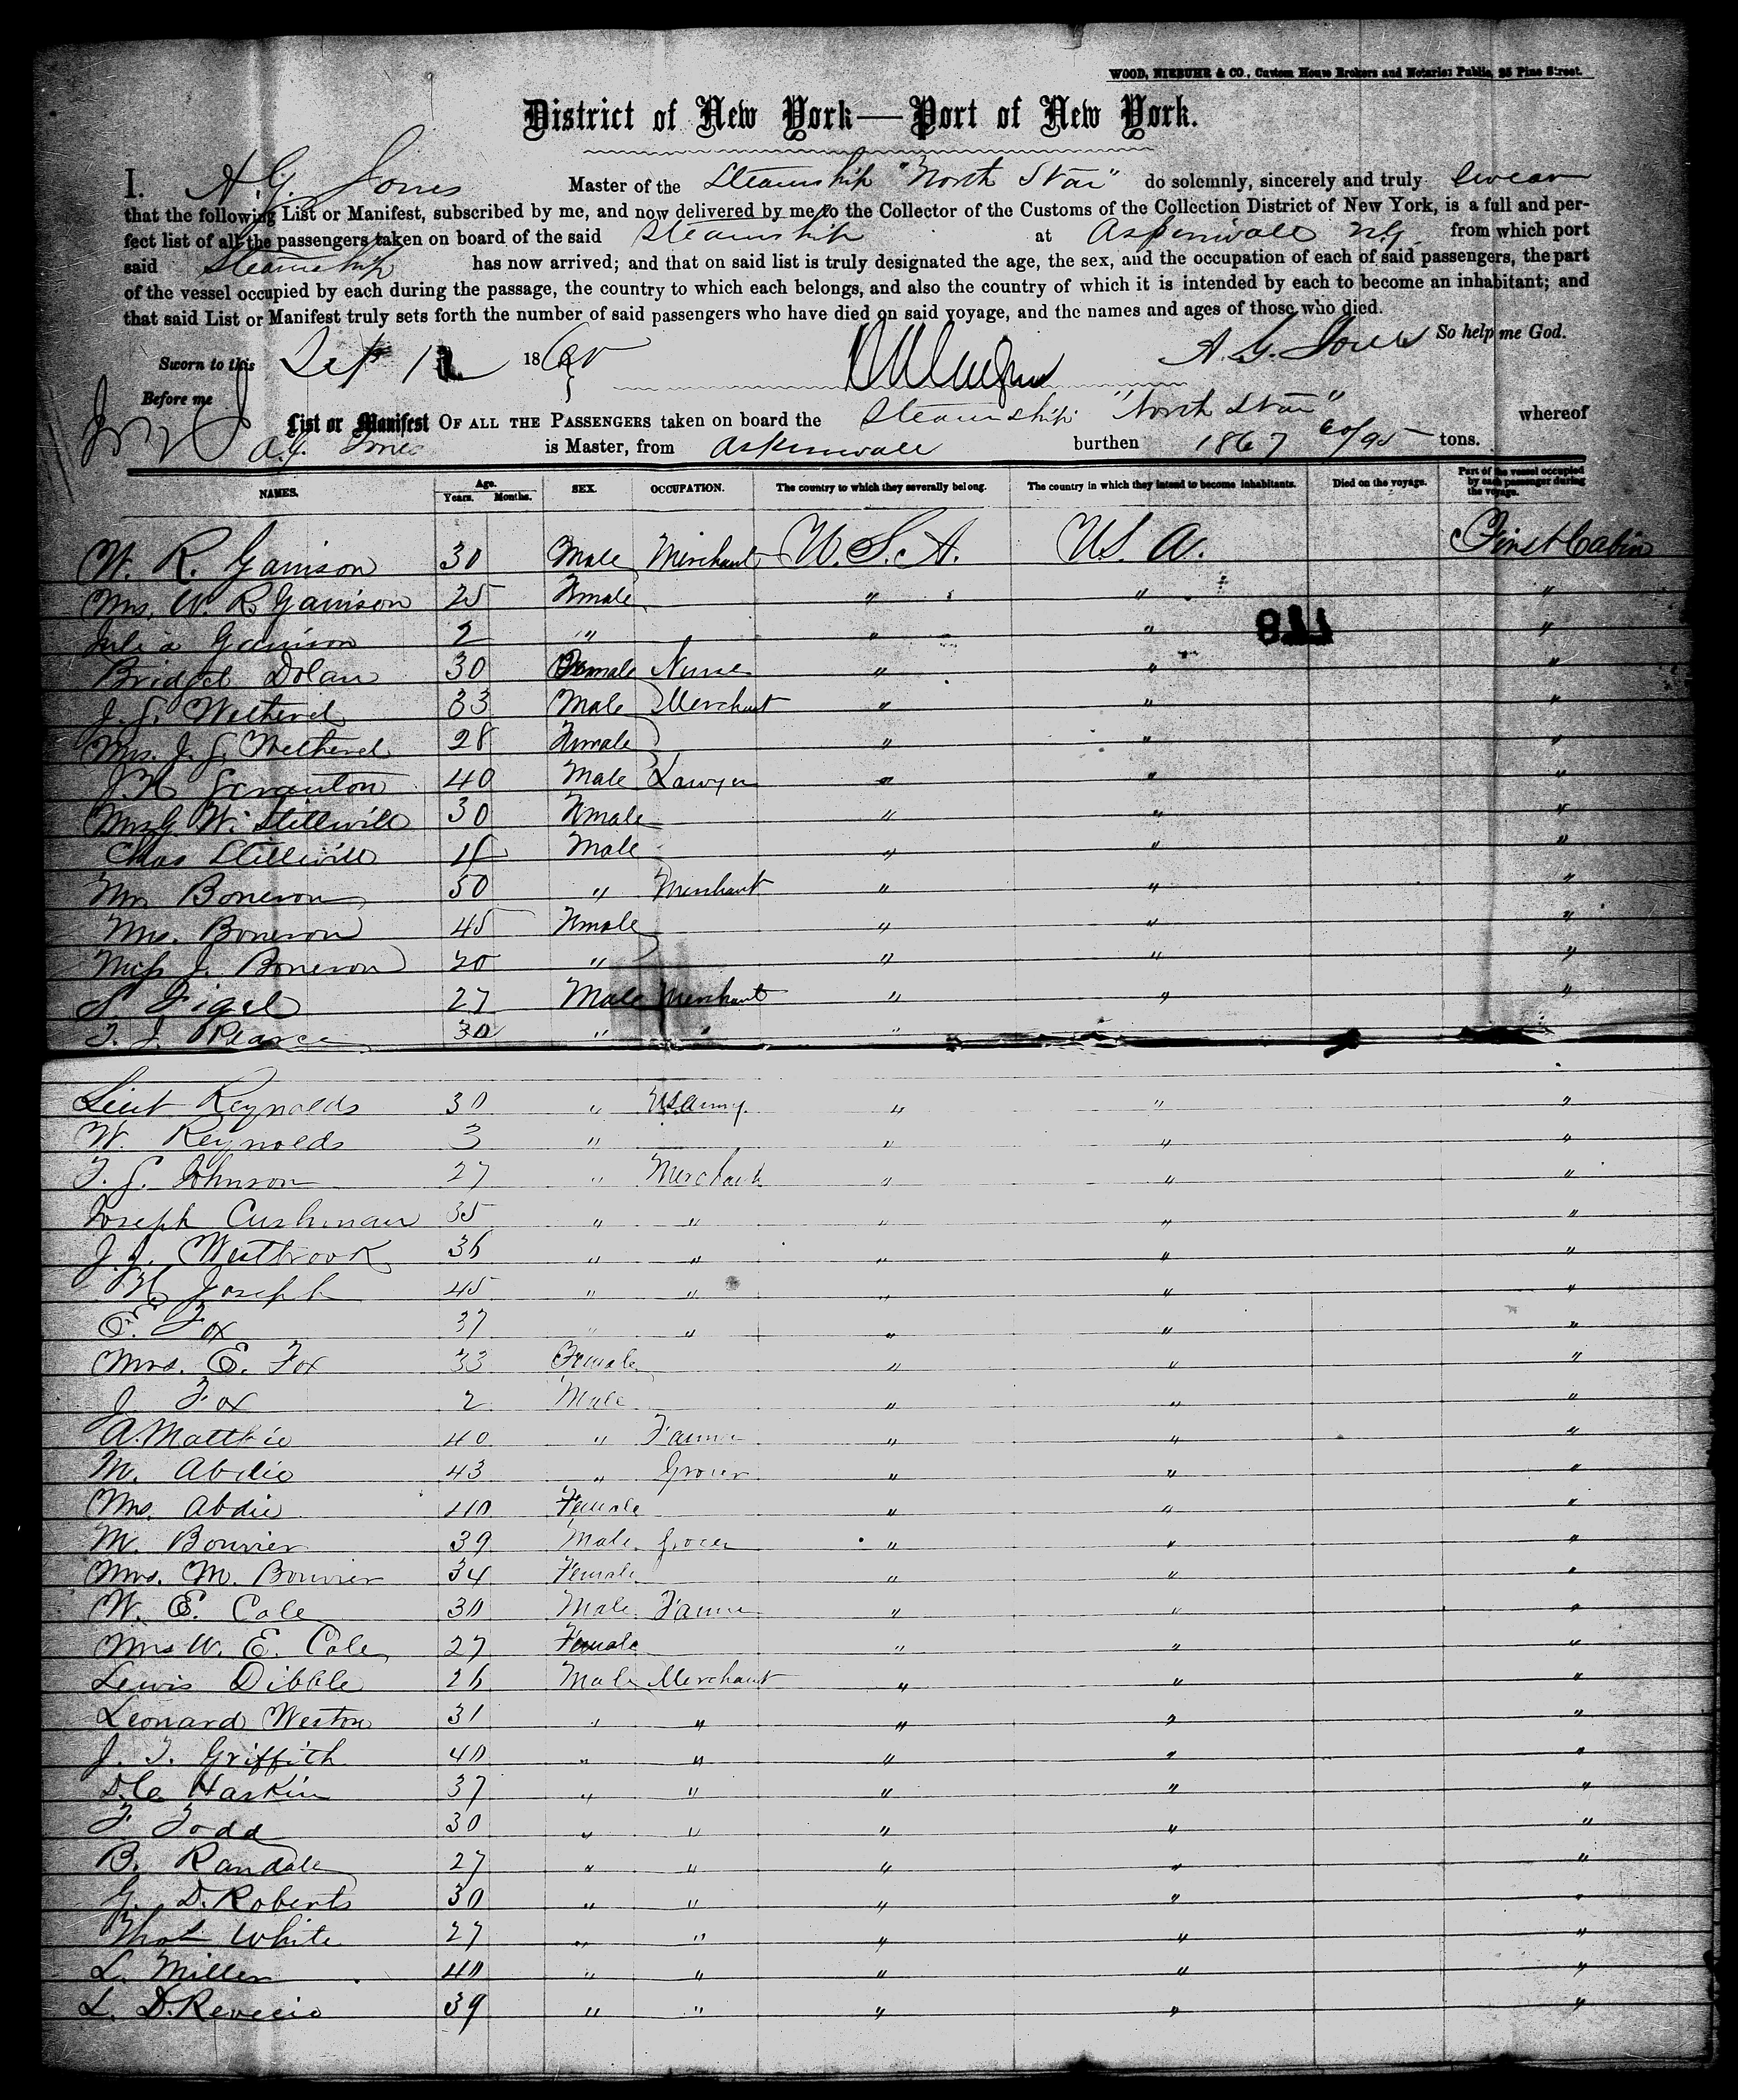 WOOD, NIEBUHR & CO., Custom House Brokers and Notaries Public, 25 Pine Street.
District of New York—Port of New York.
I, A. G. Jones Master of the Steamship "North Star" do solemnly, sincerely and truly swear
that the following List or Manifest, subscribed by me, and now delivered by me to the Collector of the Customs of the Collection District of New York, is a full and per-
fect list of all the passengers taken on board of the said Steamship at Aspinwall N.G. from which port
said Steamship has now arrived; and that on said list is truly designated the age, the sex, and the occupation of each of said passengers, the part
of the vessel occupied by each during the passage, the country to which each belongs, and also the country of which it is intended by each to become an inhabitant; and
that said List or Manifest truly sets forth the number of said passengers who have died on said voyage, and the names and ages of those who died.
So help me God.
Sworn to this Sept 12 18 A. G. Jones
Before me
List or Manifest OF ALL THE PASSENGERS taken on board the Steamship "North Star" whereof
A. G. Jones is Master, from Aspinwall burthen 1867 60/95 tons.
NAMES. Age. Years. Months. SEX. OCCUPATION. The country to which they severally belong. The country in which they intend to become inhabitants. Died on the voyage. Part of the vessel occupied by each passenger during the voyage.
W. R. Garrison 30 Male Merchant U.S.A. U.S.A. First Cabin
Mrs. W. R. Garrison 25 Female " " "
Julia Garrison 2 " " " "
Bridget Dolan 30 Female Nurse " " "
J. S. Wethered 33 Male Merchant " " "
Mrs. J. S. Wethered 28 Female " " "
Scranton 40 Male Lawyer " " "
Mrs G. W. Stillwill 30 Female " " "
Chas Stillwill Male " " "
Mr Boneron 50 " Merchant " " "
Mrs. Boneron 45 Female " " "
Miss J. Boneron 20 " " " "
S. Figel 27 Male Merchant " " "
T. J. Pearce 30 " " "
Lieut Reynolds 30 " U.S. Army " " "
W. Reynolds 3 " " " "
T. S. Johnson 27 " Merchant " " "
Joseph Cushman 35 " " " " "
J. J. Westbrook 36 " " " " "
Joseph 45 " " " " "
E. Fox 37 " " " " "
Mrs. E. Fox 33 Female " " "
J. Fox 2 Male " " "
A. Matthie 40 " Farmer " " "
M. Abdie 43 " Grocer " " "
Mrs. Abdie 40 Female " " "
M. Bouvier 39 Male Grocer " " "
Mrs. M. Bouvier 34 Female " " "
W. E. Cole 30 Male Farmer " " "
Mrs W. E. Cole 27 Female " " "
Lewis Dibble 26 Male Merchant " " "
Leonard Weston 31 " " " " "
J. T. Griffith 40 " " " " "
D. C. Haskin 37 " " " " "
F. Todd 30 " " " " "
B. Randall 27 " " " " "
G. D. Roberts 30 " " " " "
Thos White 27 " " " " "
L. Miller 40 " " " " "
L. D. 39 " " " " "